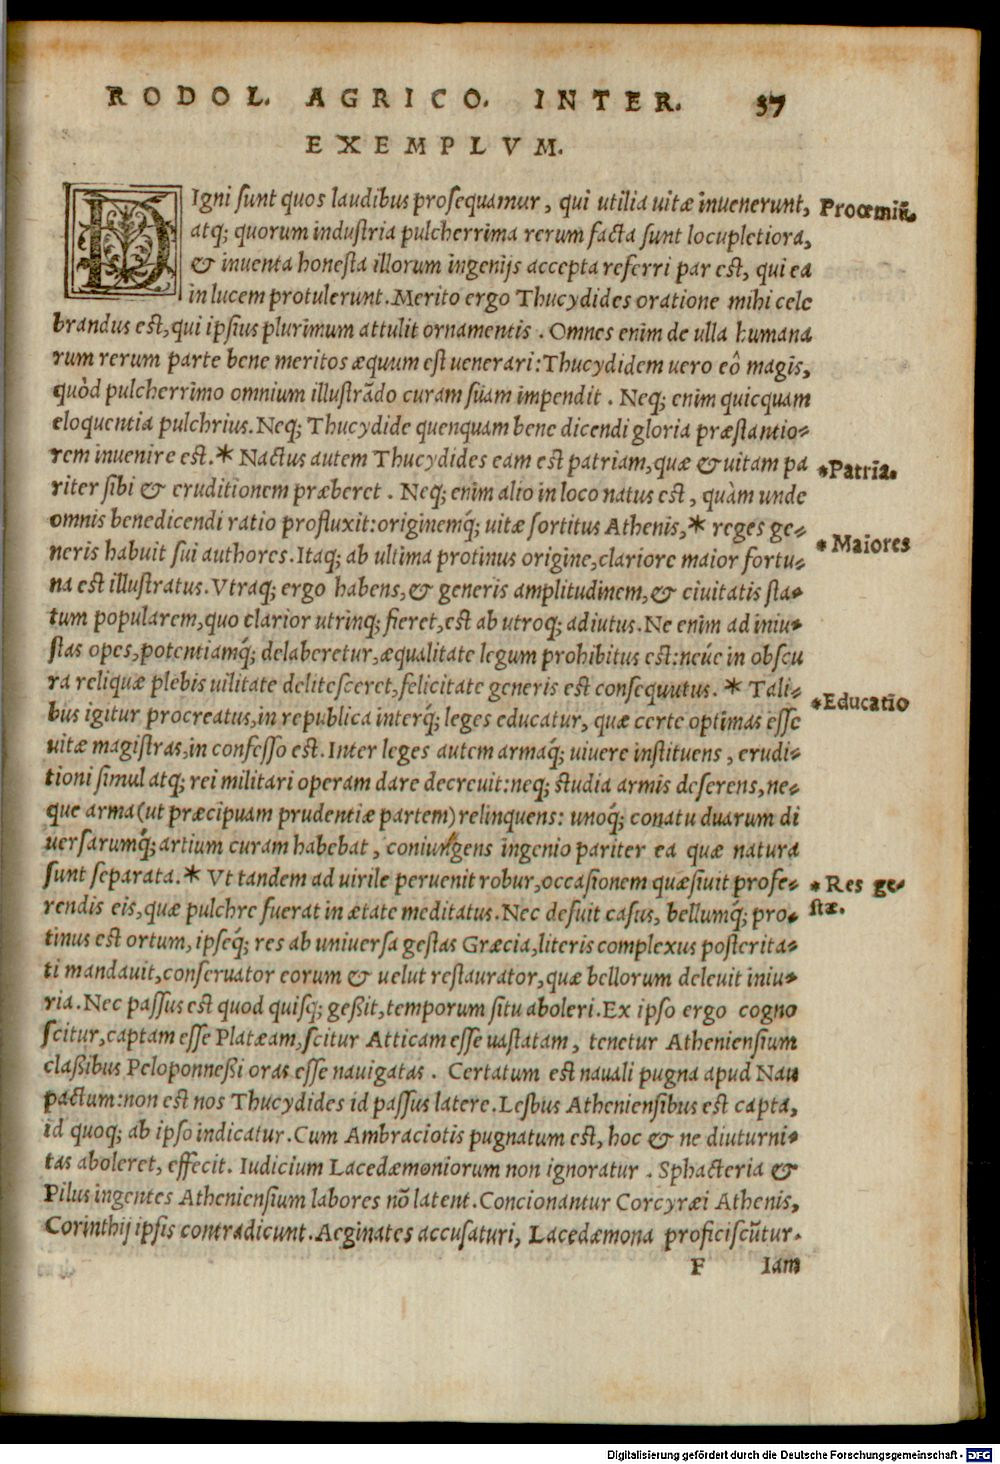 RODOL. AGRICO. INTER. 37
EXEMPLVM.
DIgni sunt quos laudibus prosequamur, qui utilia uitæ inuenerunt,
Proœmiũ.
atq; quorum industria pulcherrima rerum facta sunt locupletiora,
& inuenta honesta illorum ingenijs accepta referri par est, qui ea
in lucem protulerunt. Merito ergo Thucydides oratione mihi cele
brandus est, qui ipsius plurimum attulit ornamentis. Omnes enim de ulla humana
rum rerum parte bene meritos æquum est uenerari: Thucydidem uero eô magis,
quòd pulcherrimo omnium illustrãdo curam suam impendit. Neq; enim quicquam
eloquentia pulchrius. Neq; Thucydide quenquam bene dicendi gloria præstantio-
rem inuenire est. * Nactus autem Thucydides eam est patriam, quæ & uitam pa
*Patria.
riter sibi & eruditionem præberet. Neq; enim alio in loco natus est, quàm unde
omnis benedicendi ratio profluxit: originemq́; uitæ sortitus Athenis, * reges ge-
*Maiores
neris habuit sui authores. Itaq; ab ultima protinus origine, clariore maior fortu-
na est illustratus. Vtraq; ergo habens, & generis amplitudinem, & ciuitatis sta-
tum popularem, quo clarior utrinq; fieret, est ab utroq; adiutus. Ne enim ad iniu-
stas opes, potentiamq́; delaberetur, æqualitate legum prohibitus est: neúe in obscu
ra reliquæ plebis uilitate delitesceret, felicitate generis est consequutus. * Tali-
*Educatio
bus igitur procreatus, in republica interq́; leges educatur, quæ certe optimas esse
uitæ magistras, in confesso est. Inter leges autem armaq́; uiuere instituens, erudi-
tioni simul atq; rei militari operam dare decreuit: neq; studia armis deserens, ne-
que arma (ut præcipuam prudentiæ partem) relinquens: unoq́; conatu duarum di
uersarumq́; artium curam habebat, coniungens ingenio pariter ea quæ natura
sunt separata. * Vt tandem ad uirile peruenit robur, occasionem quæsiuit profe-
*Res ge-
rendis eis, quæ pulchre fuerat in ætate meditatus. Nec defuit casus, bellumq́; pro-
stæ.
tinus est ortum, ipseq́; res ab uniuersa gestas Græcia, literis complexus posterita-
ti mandauit, conseruator eorum & uelut restaurator, quæ bellorum deleuit iniu-
ria. Nec passus est quod quisq; geßit, temporum situ aboleri. Ex ipso ergo cogno
scitur, captam esse Platæam, scitur Atticam esse uastatam, tenetur Atheniensium
claßibus Peloponneßi oras esse nauigatas. Certatum est nauali pugna apud Nau
pactum: non est nos Thucydides id passus latere. Lesbus Atheniensibus est capta,
id quoq; ab ipso indicatur. Cum Ambraciotis pugnatum est, hoc & ne diuturni-
tas aboleret, effecit. Iudicium Lacedæmoniorum non ignoratur. Sphacteria &
Pilus ingentes Atheniensium labores nõ latent. Concionantur Corcyræi Athenis,
Corinthij ipsis contradicunt. Aeginates accusaturi, Lacedæmona proficiscũtur.
F Iam
Digitalisierung gefördert durch die Deutsche Forschungsgemeinschaft - DFG